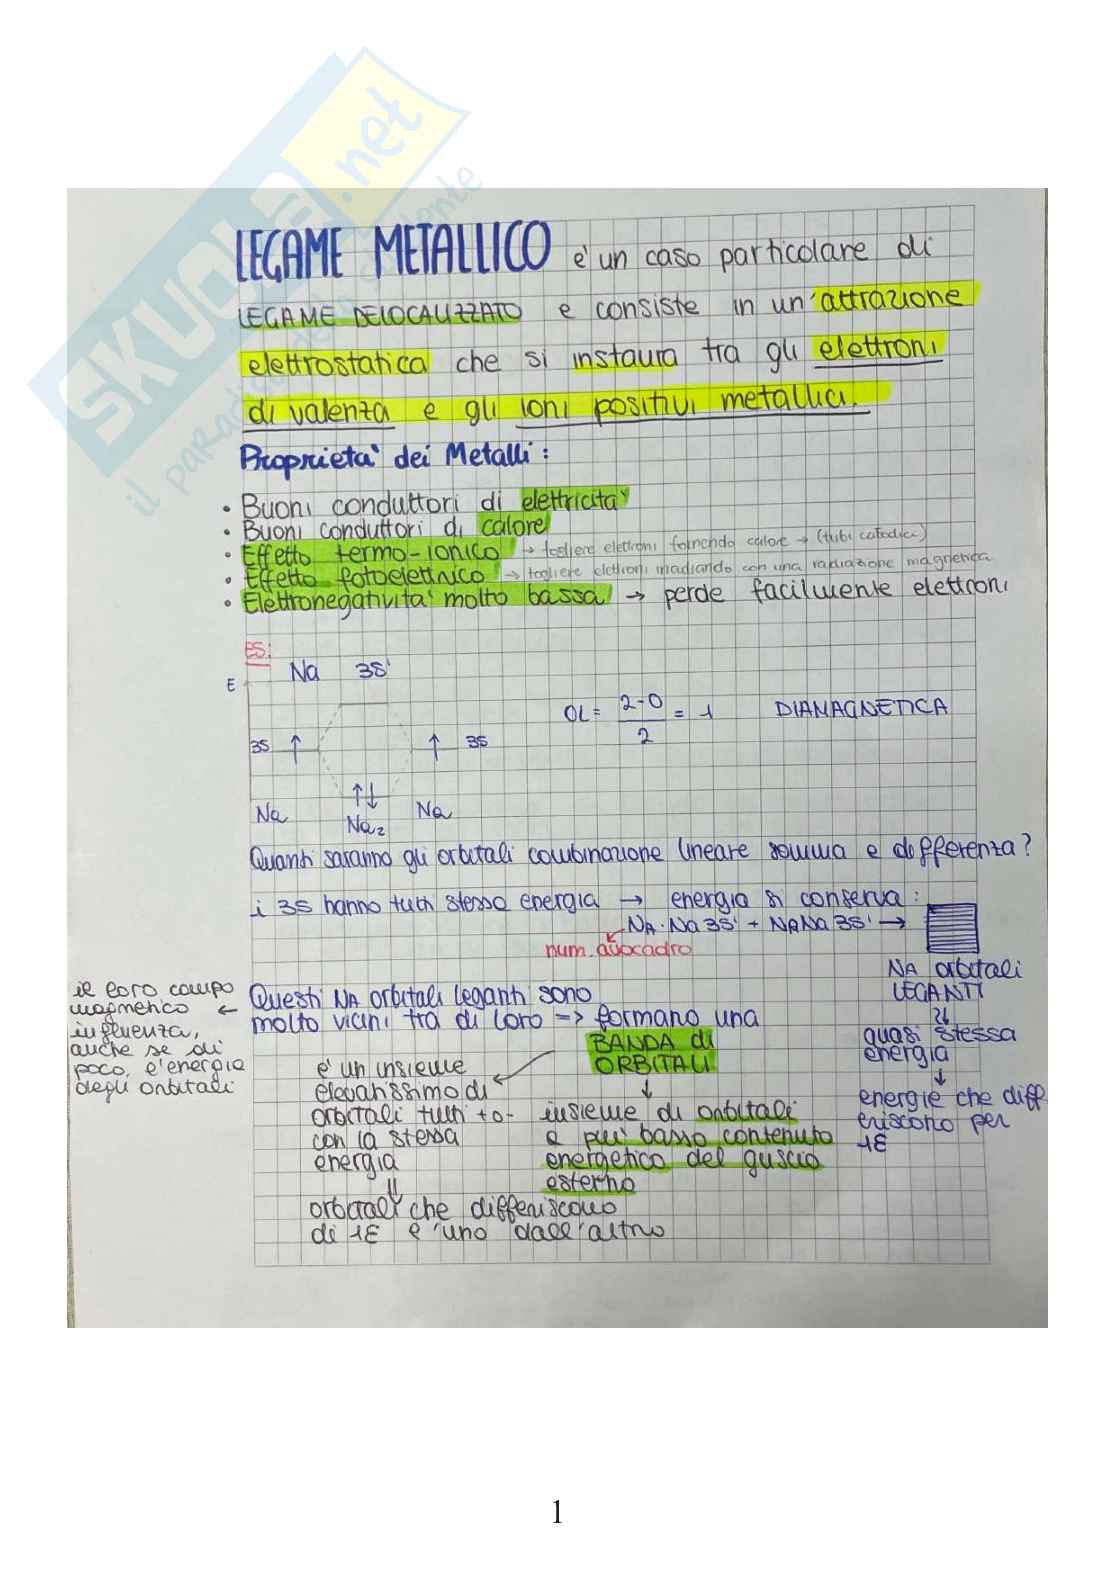 SKUOLA.net
il paradiso dello studente
LEGAME METALLICO è un caso particolare di
LEGAME DELOCALIZZATO e consiste in un'attrazione
elettrostatica che si instaura tra gli elettroni
di valenza e gli ioni positivi metallici.
Proprietà dei Metalli:
• Buoni conduttori di elettricità
• Buoni conduttori di calore
• Effetto termo-ionico → togliere elettroni fornendo calore → (tubi catodici)
• Effetto fotoelettrico → togliere elettroni irradiando con una radiazione magnetica
• Elettronegatività molto bassa → perde facilmente elettroni
ES:
Na 3S¹
E
OL = 2-0 / 2 = 1 DIAMAGNETICA
3S ↑ ↑ 3S
↑↓
Na Na₂ Na
Quanti saranno gli orbitali combinazione lineare somma e differenza?
i 3S hanno tutti stessa energia → energia si conserva:
NA·Na3S¹ + NANa3S¹ →
num. avocadro
NA orbitali
LEGANTI
quasi stessa
energia
↓
energie che diff
eriscono per
1E
Questi NA orbitali leganti sono
molto vicini tra di loro => formano una
BANDA di
ORBITALI
il loro campo
magnetico ←
influenza,
anche se di
poco, e'energia
degli orbitali
è un insieme
elevatissimo di
orbitali tutti to-
con la stessa
energia
⇓
orbitali che differiscono
di 1E e'uno dall'altro
↓
insieme di orbitali
a più basso contenuto
energetico del guscio
esterno
1